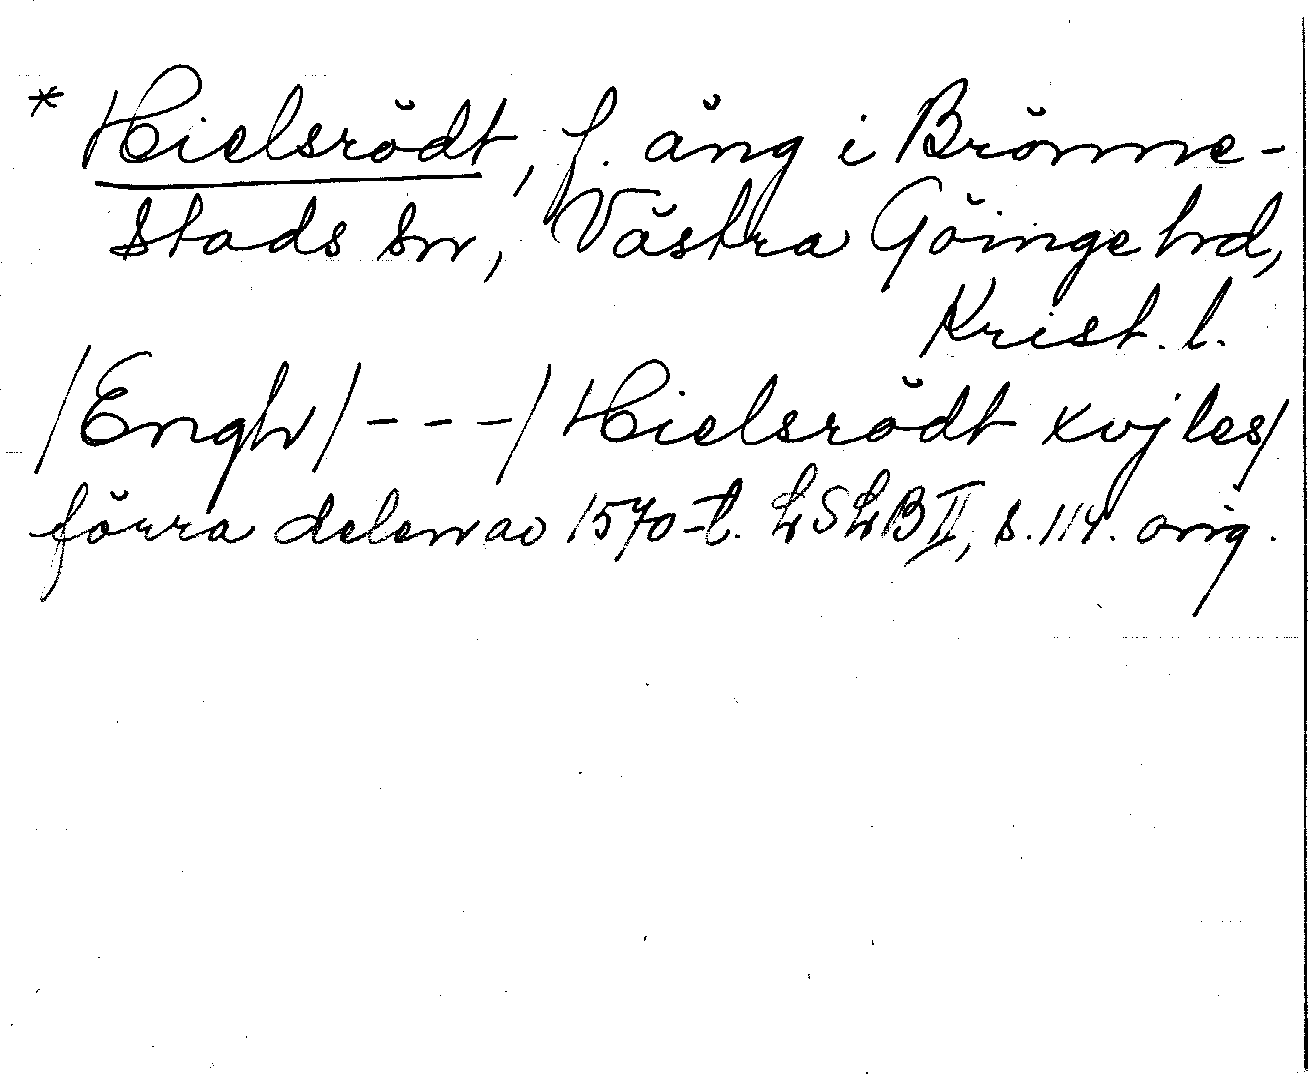 * Hielsrödt, f. äng i Brönne-
stads sn, Västra Göinge hd,
Krist. l.
/Engh/ - - - / Hielsrödt xvj les/
förra delen av 1570-t. LSLB II, s. 114. orig.